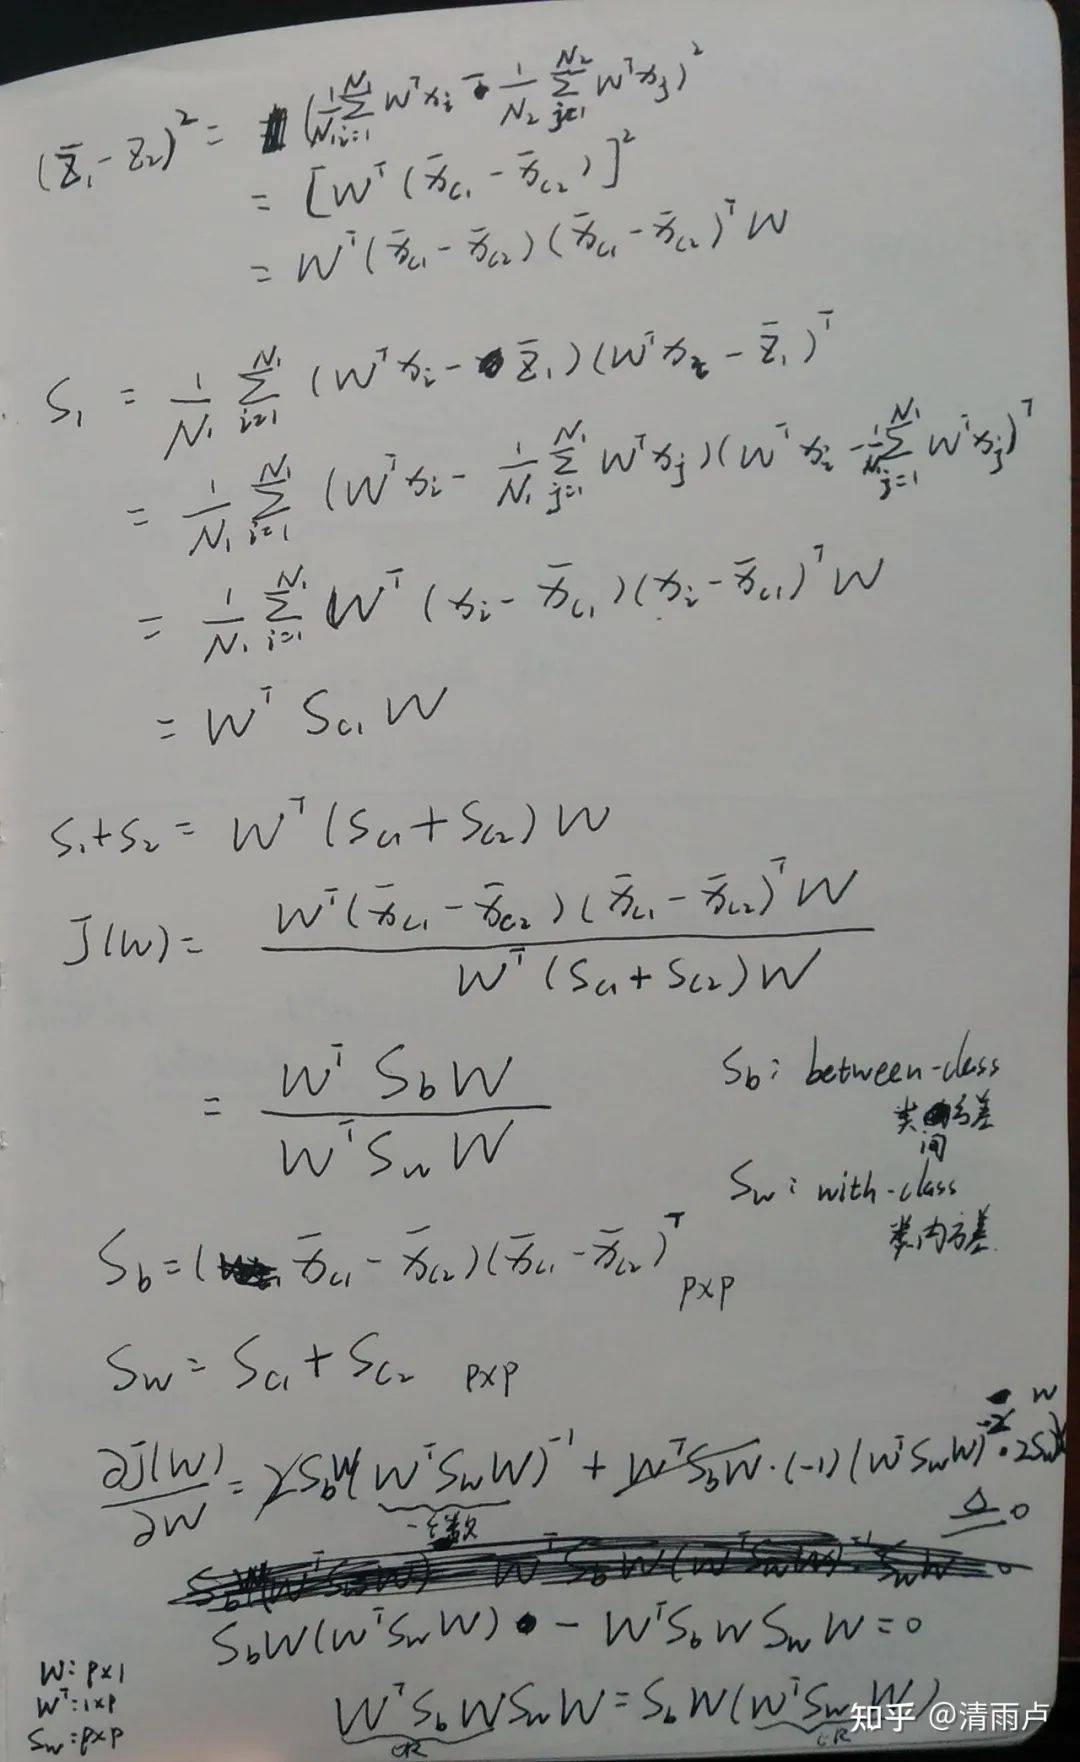 (z̄₁ - z̄₂)² = (1/N₁ Σ_{i=1}^{N₁} Wᵀxᵢ - 1/N₂ Σ_{j=1}^{N₂} Wᵀxⱼ)²
= [Wᵀ(x̄_{c1} - x̄_{c2})]²
= Wᵀ(x̄_{c1} - x̄_{c2})(x̄_{c1} - x̄_{c2})ᵀW
S₁ = 1/N₁ Σ_{i=1}^{N₁} (Wᵀxᵢ - z̄₁)(Wᵀxᵢ - z̄₁)ᵀ
= 1/N₁ Σ_{i=1}^{N₁} (Wᵀxᵢ - 1/N₁ Σ_{j=1}^{N₁} Wᵀxⱼ)(Wᵀxᵢ - 1/N₁ Σ_{j=1}^{N₁} Wᵀxⱼ)ᵀ
= 1/N₁ Σ_{i=1}^{N₁} Wᵀ(xᵢ - x̄_{c1})(xᵢ - x̄_{c1})ᵀW
= Wᵀ S_{c1} W
S₁+S₂ = Wᵀ(S_{c1} + S_{c2})W
J(W) = Wᵀ(x̄_{c1} - x̄_{c2})(x̄_{c1} - x̄_{c2})ᵀW / Wᵀ(S_{c1} + S_{c2})W
= Wᵀ S_b W / Wᵀ S_w W
S_b: between-class
类间方差
S_w: with-class
类内方差
S_b = (x̄_{c1} - x̄_{c2})(x̄_{c1} - x̄_{c2})ᵀ p×p
S_w = S_{c1} + S_{c2} p×p
∂J(W)/∂W = 2S_bW(WᵀS_wW)⁻¹ + WᵀS_bW·(-1)(WᵀS_wW)⁻²·2S_wW
≜ 0
S_bW(WᵀS_wW) - WᵀS_bWS_wW = 0
WᵀS_bWS_wW = S_bW(WᵀS_wW)
∈R ∈R
W: p×1
Wᵀ: 1×p
S_w: p×p
知乎 @清雨卢